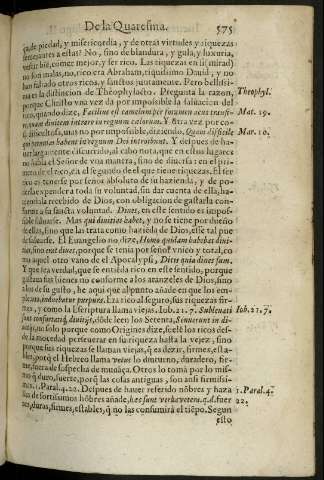 De la Quaresma. 575
ça, de piedad, y misericordia, y de otras virtudes y riquezas
semejantes a estas? No, sino de blandura, y gula, y luxuria,
vestir biẽ, comer mejor, y ser rico. Las riquezas en si (mirad)
no son malas, no, rico era Abraham, riquissimo Dauid, y no
han faltado otros ricos, y sanctos juntamente. Pero bellissi-
ma es la distincion de Theophylacto. Pregunta la razon, Theophyl.
porque Christo vna vez da por impossible la saluacion del
rico, quando dize, Facilius est camelum per foramen acus transi- Mat. 19.
re, quam diuitem intrare in regnum cælorum. Y otra vez por co-
sa dificultosa, mas no por impossible, diziendo, Quam difficile Mar. 10.
qui pecunias habent in regnum Dei introibunt. Y despues de ha-
uer largamente discurrido, al cabo nota, que en estos lugares
no habla el Señor de vna manera, sino de diuersa: en el pri-
mero de el rico, en el segundo de el que tiene riquezas. El ser
rico es tenerse por señor absoluto de su hazienda, y de po-
derla expender a toda su voluntad, sin dar cuenta de ella, ha-
uiendola recebido de Dios, con obligacion de gastarla con-
forme a su sancta voluntad. Diues, en este sentido es impos-
sible saluarse. Mas qui diuitias habet, y no se tiene por dueño
de ellas, sino que las trata como haziẽda de Dios, esse tal pue
de saluarse. El Euangelio no dize, Homo quidam habebat diui-
tias, sino erat diues, porque se tenia por señor vnico y total, co
mo aquel otro vano de el Apocalypsi, Dicis quia diues sum.
Y que sea verdad, que se entiẽda rico en este sentido, porque
gastaua sus bienes no conforme a los aranzeles de Dios, sino
a los de su gusto, he aqui que al punto añade en que los em-
pleaua, induebatur purpura. Era rico al seguro, sus riquezas fir-
mes, y como la Escriptura llama viejas, Iob. 21. 7. Subleuati Iob. 21. 7.
sunt confortatiq́; diuitijs, dõde leẽ los Setenta, Senuerunt in di-
uitijs, no solo porque como Origines dize, suelẽ los ricos des-
de la mocedad perseuerar en su riqueza hasta la vejez, sino
porque sus riquezas se llaman viejas, q̃ es dezir, firmes, esta-
bles, porq̃ el Hebreo llama vetus lo diuturno, duradero, fir-
me, fuera de sospecha de mudãça. Otros lo tomã por lo mis-
mo q̃ duro, fuerte, porq̃ las cosas antiguas, son assi firmissi-
mas. 1. Paral. 4. 22. Despues de hauer referido nõbres y haza 1. Paral. 4.
ñas de fortissimos hõbres añade, hæc sunt verba vetera. q. d. fuer 22.
tes, duras, firmes, estables, q̃ no las consumirá el tiẽpo. Segun
esto